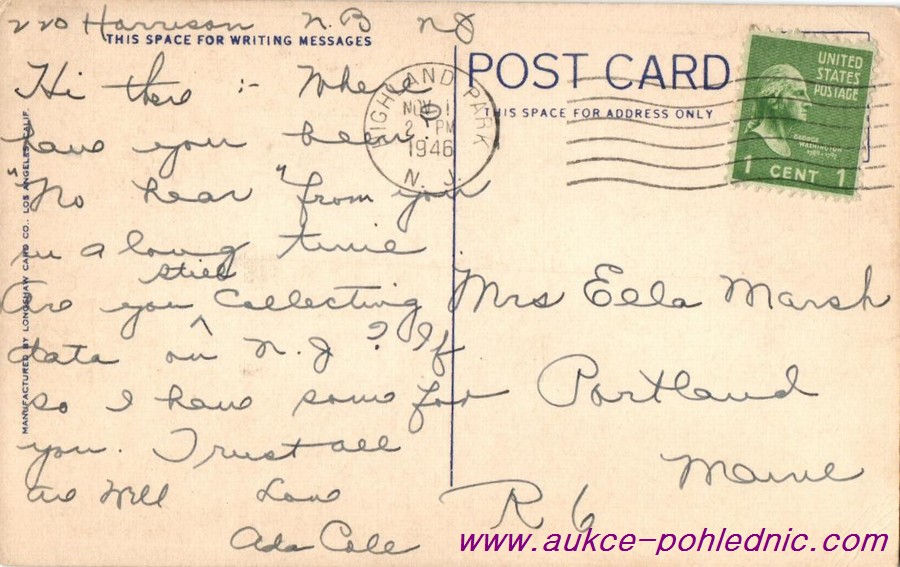 220 Harrison N.B NJ
THIS SPACE FOR WRITING MESSAGES
Hi there :- Where
have you been.
"No hear" from you
in a long time.
still
Are you ^ Collecting
data on N.J ? If
so I have some for
you. Trust all
are well Love
Ada Cole
MANUFACTURED BY LONGSHAW CARD CO., LOS ANGELES, CALIF.
POST CARD
THIS SPACE FOR ADDRESS ONLY
HIGHLAND PARK
NOV 1
2 PM
1946
N. J.
UNITED
STATES
POSTAGE
GEORGE
WASHINGTON
1789-1797
1 CENT 1
Mrs Ella Marsh
Portland
Maine
R 6
www.aukce-pohlednic.com